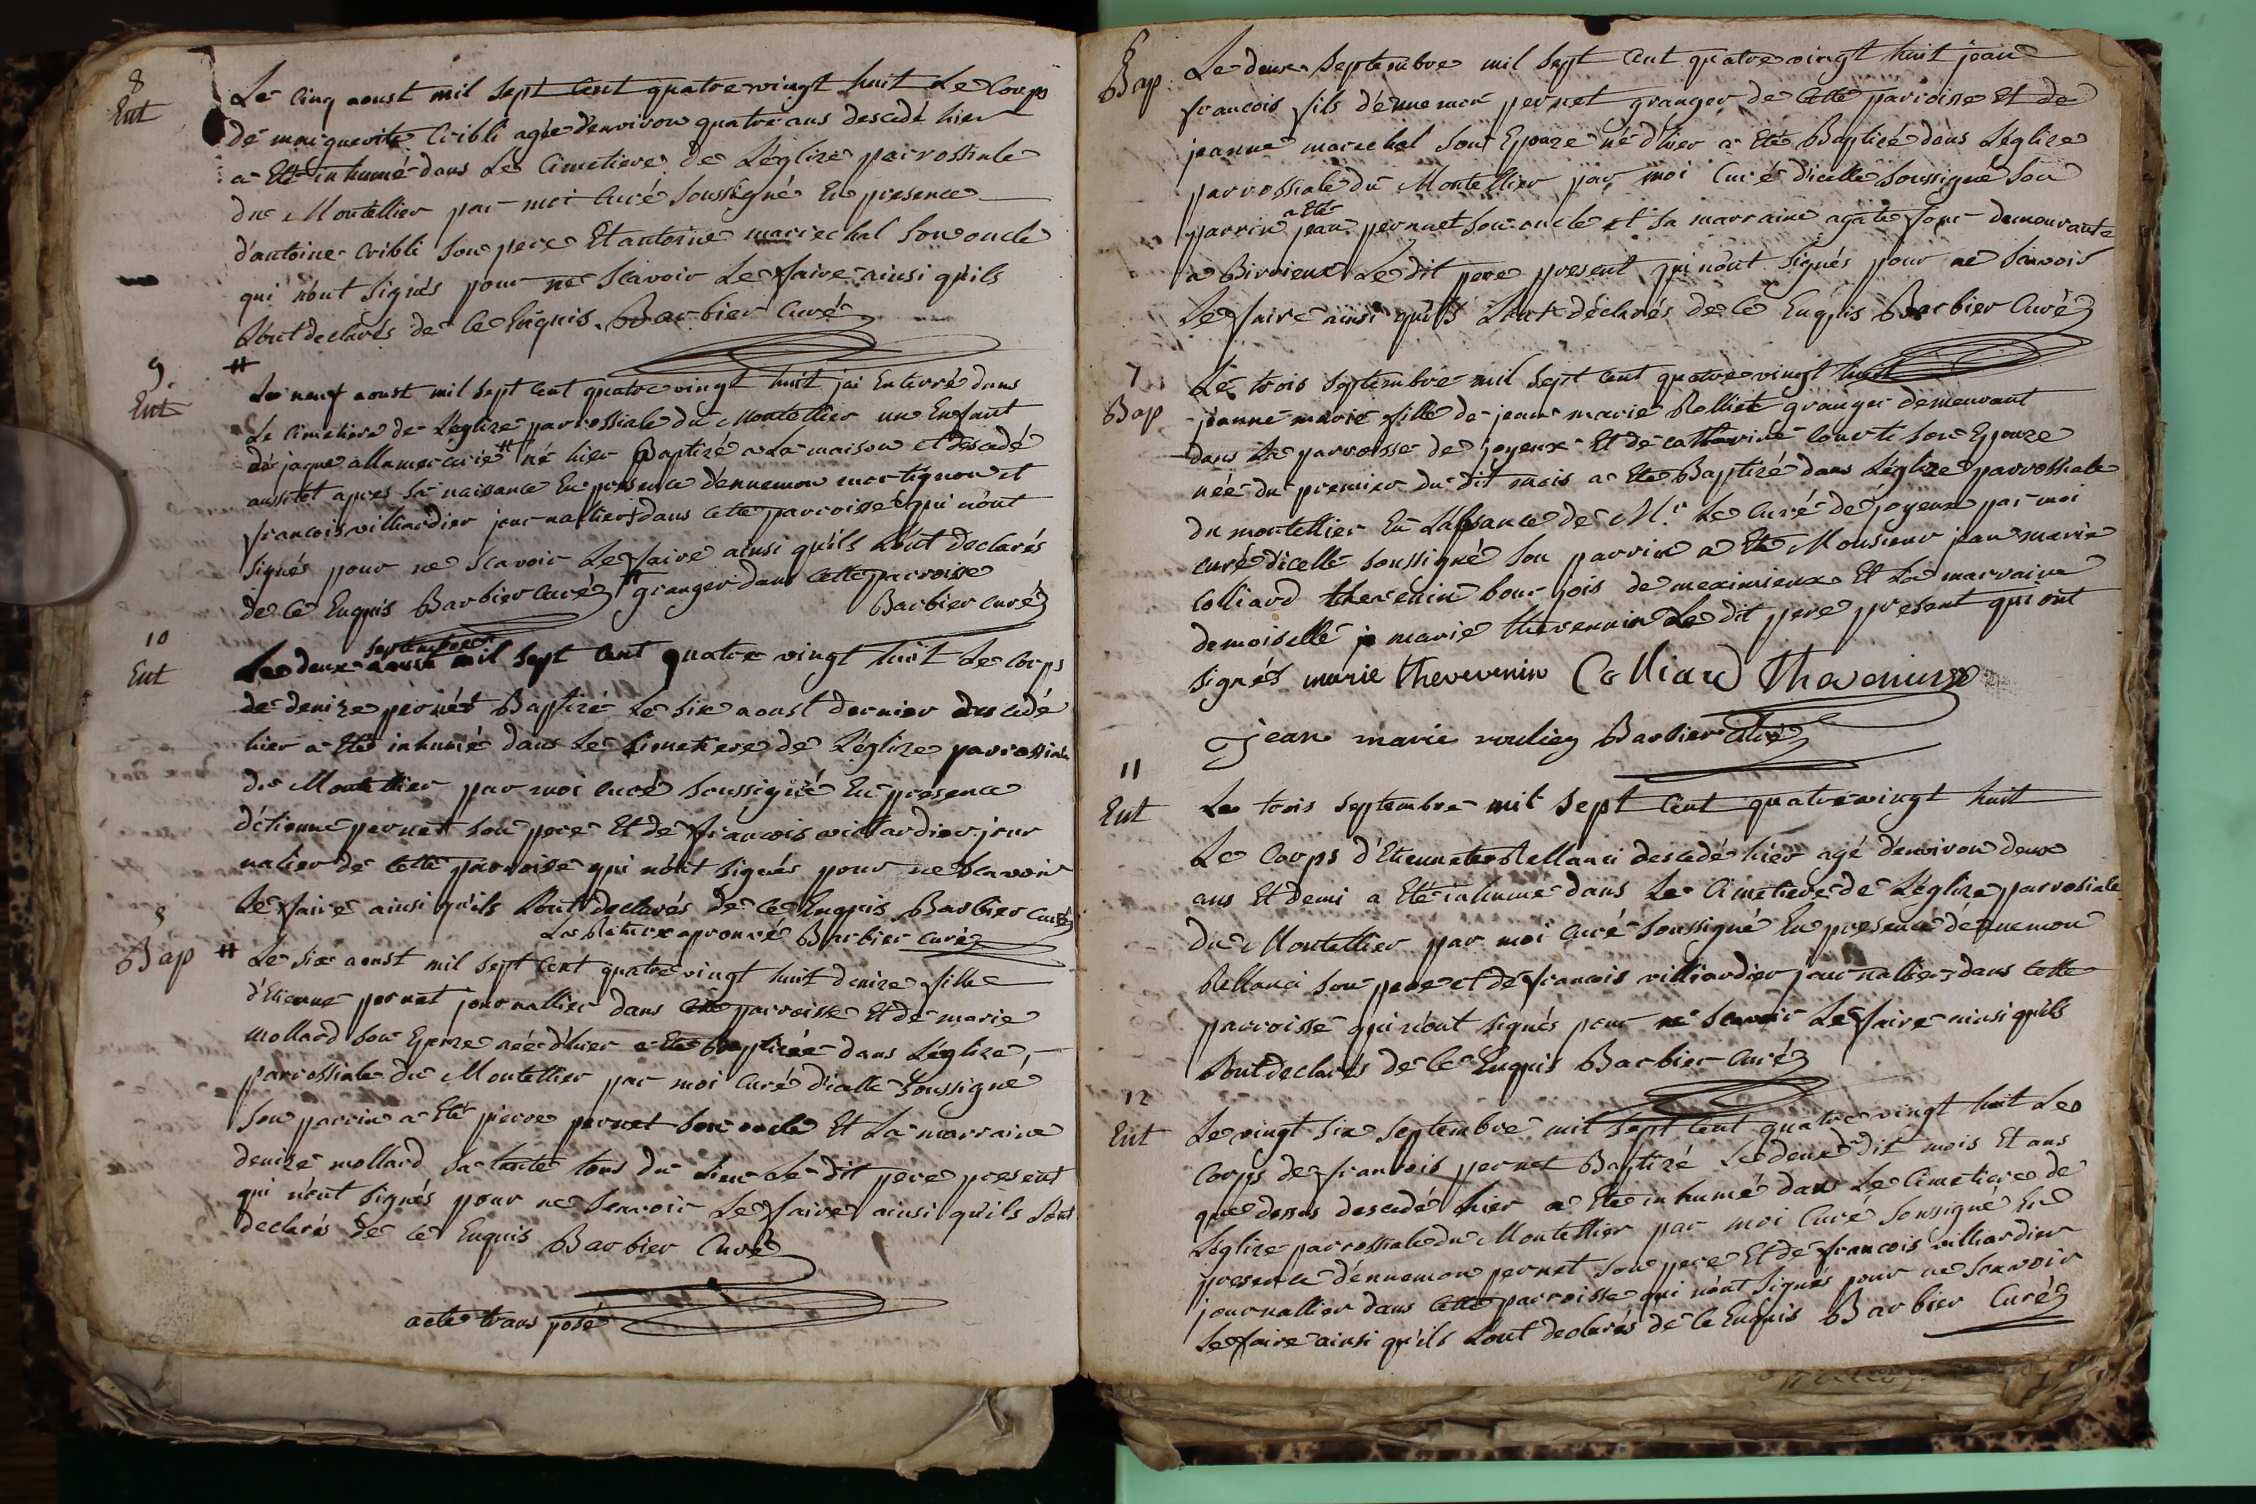 8
Ent
Le cinq aoust mil sept cent quatre vingt huit Le Corps
de marguerite Cribli agée d'environ quatre ans descedé hier
a Eté inhumé dans Le Cimetiere de L'églize parrossiale
du Montellier par moi Curé soussigné En presence
d'antoine Cribli son pere Et antoine marrechal son oncle
qui n'ont signés pour ne scavoir Le faire ainsi qu'ils
L'ont declarés de Ce Enquis Barbier Curé
9
Ent
Le neuf aoust mil sept cent quatre vingt huit jai Enterré dans
Le Cimetiere de L'eglize parrossiale du Montellier un Enfant
de jaque allamercerie # né hier Baptizé a La maison et descedé
aussitot apres sa naissance En presence d'ennemon martignon et
francois villiardier journallier dans cette parroisse qui n'ont
signés pour ne scavoir Le faire ainsi qu'ils L'ont declarés
de Ce Enquis Barbier Curé # granger dans cette parroisse
Barbier curé
10
Ent
septembre
Le deux aoust mil sept cent quatre vingt huit Le corps
de denize pernet Baptizé Le six aoust dernier descedé
hier a Eté inhumé dans Le Cimetiere de L'églize parrossiale
du Montellier par moi curé soussigné En presence
d'étienne pernet son pere Et de francois villardier jour
nalier de cette parroise qui n'ont signés pour ne scavoir
Le faire ainsi qu'ils L'ont declarés de Ce Enquis Barbier curé
La rature aprouvé Barbier curé
5
Bap
# Le six aoust mil sept cent quatre vingt huit denize fille
d'Etienne pernet journallier dans cette parroisse Et de marie
mollard son Epouze née d'hier a Eté baptizée dans L'églize
parrossiale du Montellier par moi Curé d'icelle soussigné
son parrin a Eté pierre pernet son oncle Et La marraine
denize mollard sa tante tous du Lieu Le dit pere present
qui n'ont signés pour ne scavoir Le faire ainsi qu'ils L'ont
declarés de Ce Enquis Barbier Curé
acte trans posé
6
Bap
Le deux septembre mil sept cent quatre vingt huit jean
francois fils d'ennemon pernet granger de Cette parroisse Et de
jeanne marechal son Epouze né d'hier a Eté Baptizé dans L'églize
parrossiale du Montellier par moi Curé d'icelle soussigné son
a Eté
parrin jean pernet son oncle et sa marraine agate demeurante
a Birieux Le dit pere present qui n'ont signés pour ne scavoir
Le faire ainsi qu'ils L'ont déclarés de Ce Enquis Barbier Curé
7
Bap
Le trois septembre mil sept cent quatre vingt huit
jeanne marie fille de jean marie Rolliet granger demeurant
dans La parroisse de joyeux Et de catherine Son Epouze
née du premier du dit mois a Eté Baptizé dans L'églize parrossiale
du montellier En L'absance de M.r Le Curé de joyeux par moi
curé d'icelle soussigné son parrin a Eté Monsieur jean marie
Colliard thevenin bourjois de meximieux Et La marraine
demoiselle marie thevennin Le dit pere present qui ont
signés marie thevevenin Colliard Thevenin
jean marie Barbier curé
11
Ent
Le trois septembre mil sept cent quatre vingt huit
Le Corps d'Etiennete Rellanci descedé hier agé d'environ deux
ans Et demi a Eté inhumé dans Le Cimetiere de L'églize parrosiale
du Montellier par moi curé soussigné En presence d'ennemon
Rellanci son pere et de francois villiardier journallier dans cette
parroisse qui n'ont signés pour ne scavoir Le faire ainsi qu'ils
L'ont declarés de Ce Enquis Barbier Curé
12
Ent
Le vingt six septembre mil sept cent quatre vingt huit Le
Corps de francois pernet Baptizé Le deux dit mois Et ans
que dessus descedé hier a Eté inhumé dans Le Cimetiere de
L'églize parrossiale du Montellier par moi Curé sousigné En
presence d'ennemon pernet son pere Et de francois villiardier
journallier dans Cette parroisse qui n'ont signés pour ne scavoir
Le faire ainsi qu'ils L'ont declarés de Ce Enquis Barbier Curé